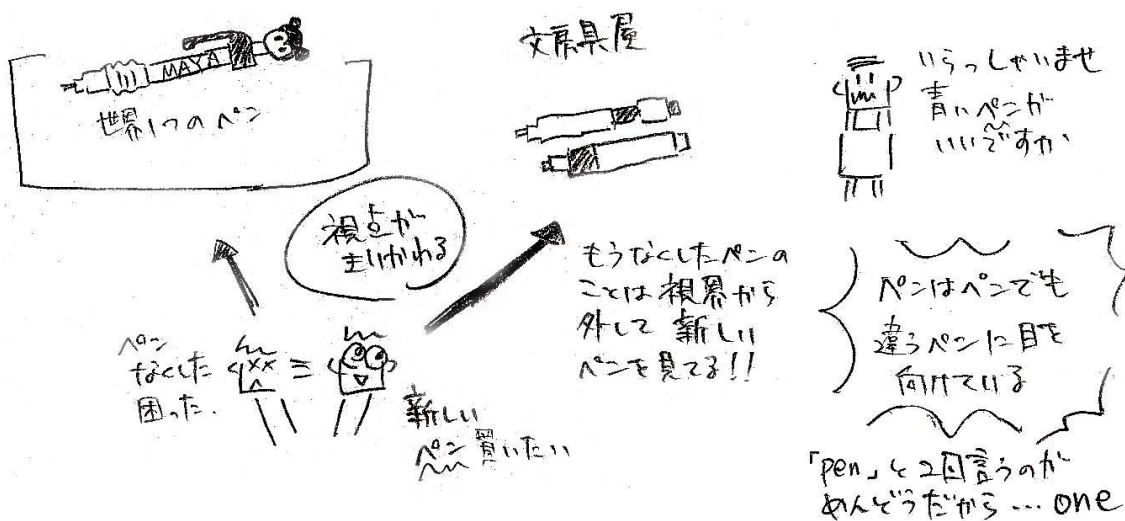 MAYA
世界1つのペン
文房具屋
いらっしゃいませ
青いペンが
いいですか
視点が
まいかわる
もうなくしたペンの
ことは視界から
外して 新しい
ペンを見てる!!
ペンはペンでも
違うペンに目を
向けている
ペン
なくした
困った.
新しい
ペン買いたい
「pen」と2回言うのが
めんどうだから…one